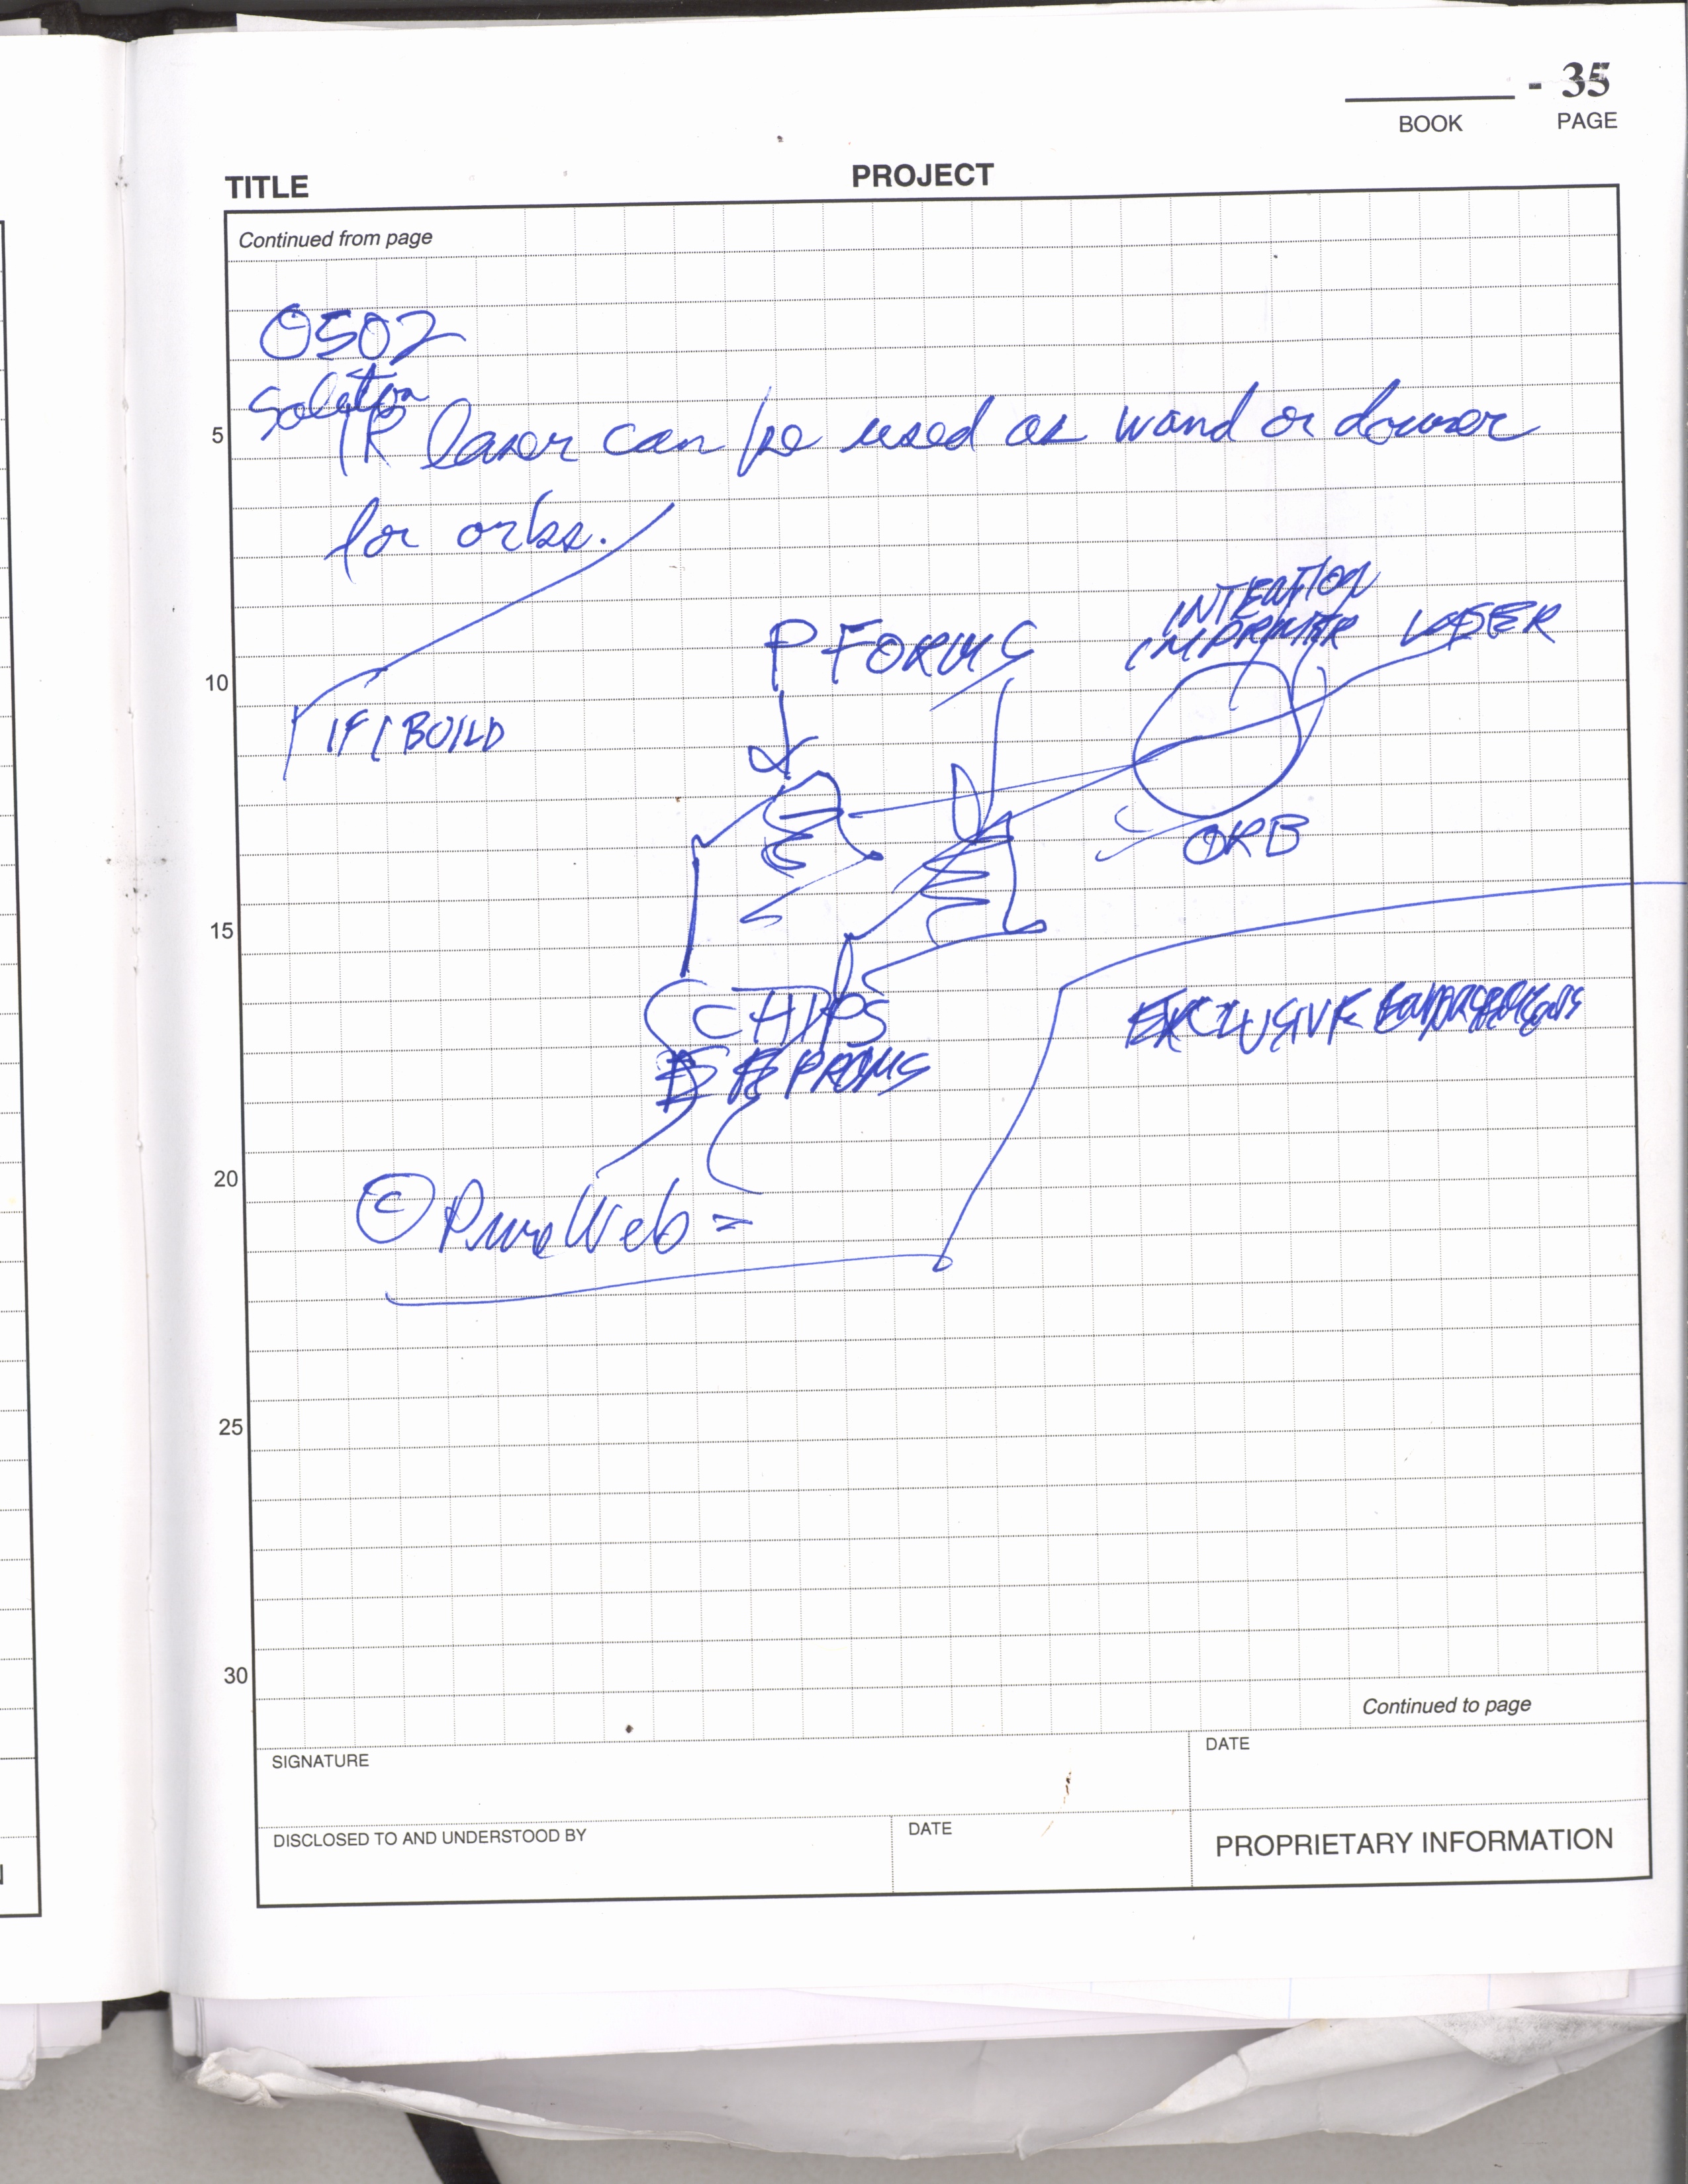 - 35
BOOK PAGE
TITLE PROJECT
Continued from page
0502
Soliton
5 IR laser can be used as wand or dowser
for orbs.
INTENTION
P FORMS IMPRINTER LASER
10
IF I BUILD
ORB
15
CHIPS
EXCLUSIVE
PROMS
20
© PureWeb =
25
30
Continued to page
SIGNATURE DATE
DISCLOSED TO AND UNDERSTOOD BY DATE PROPRIETARY INFORMATION